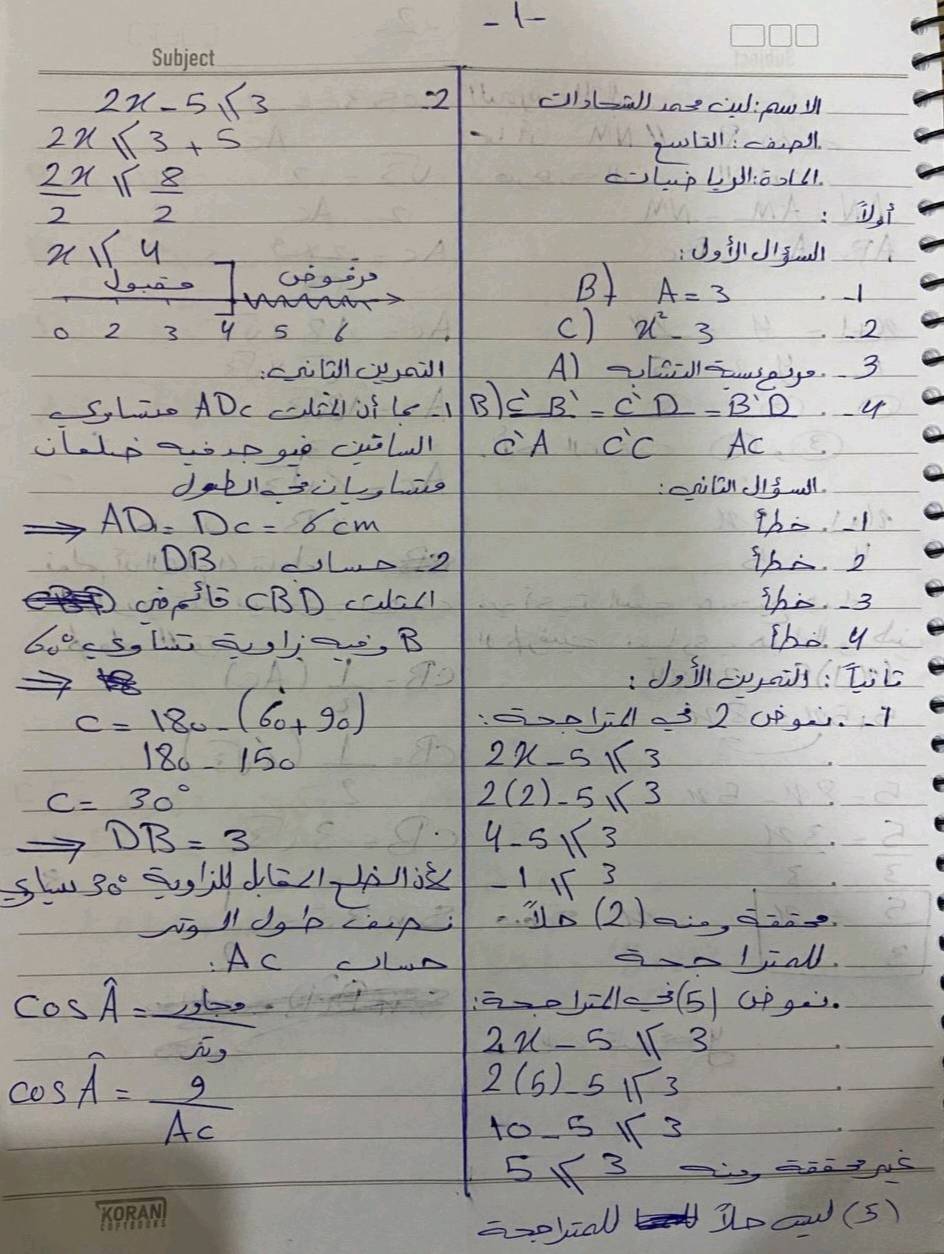 -1-
Subject
الاسم: ليث محمد الشحادات
الصف: التاسع
المادة: الرياضيات
أولاً:
السؤال الأول:
1- B) A = 3
2- C) x² - 3
3- A) مربع نسبة التشابه
4- B) C`B` = C`D = B`D
C`A C`C AC
السؤال الثاني:
1- خطأ
2. خطأ
3- خطأ
4- خطأ
ثانياً: التمرين الأول:
1- نعوض 2 في المتراجحة:
2x - 5 ⩽ 3
2(2) - 5 ⩽ 3
4 - 5 ⩽ 3
-1 ⩽ 3
محققة ومنه (2) حلاً
للمتراجحة
نعوض (5) في المتراجحة:
2x - 5 ⩽ 3
2(5) - 5 ⩽ 3
10 - 5 ⩽ 3
5 ⩽ 3 غير محققة ومنه
(5) ليس حلاً للمتراجحة
2- 2x - 5 ⩽ 3
2x ⩽ 3 + 5
2x ⩽ 8
2 2
x ⩽ 4
مقبول ] مرفوض
0 2 3 4 5 6
التمرين الثاني:
1. بما أن المثلث ADC متساوي
الساقين فيوجد فيه ضلعان
متساويان في الطول
⇒ AD = DC = 6 cm
2- حساب DB
المثلث CBD قائم في
B وفيه زاوية تساوي 60°
⇒
C = 180 - (60 + 90)
180 - 150
C = 30°
⇒ DB = 3
لأن الضلع المقابل للزاوية 30° يساوي
نصف طول الوتر
حساب AC:
cos Â = مجاور
وتر
cos Â = 9
AC
KORAN
COPYBOOKS